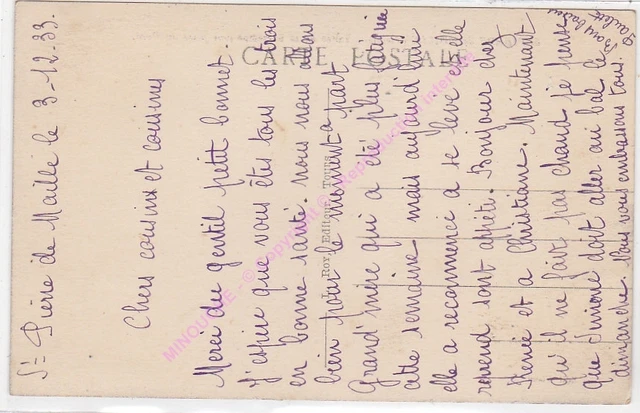 St Pierre de Maillé le 3-12-33.
Chers cousins et cousines
Merci du gentil petit bonnet.
J'espère que vous êtes tous les trois
en bonne santé. nous nous allons
bien pour le moment a part
Grand'mère qui a été plus fatiguée
cette semaine mais aujourd'hui
elle a recommencé a se levé et elle
reprend sont appéti. Bonjour chez
Renée et a Christiane. Maintenant
qu'il ne fait pas chaud je pense
que Simone doit aller au bal le
dimanche. Nous vous embrassons tous.
Bons baisers
Paulette
CARTE POSTALE
Roy, Editeur,
MINOUCHE - © Copyright © Reproduction interdite